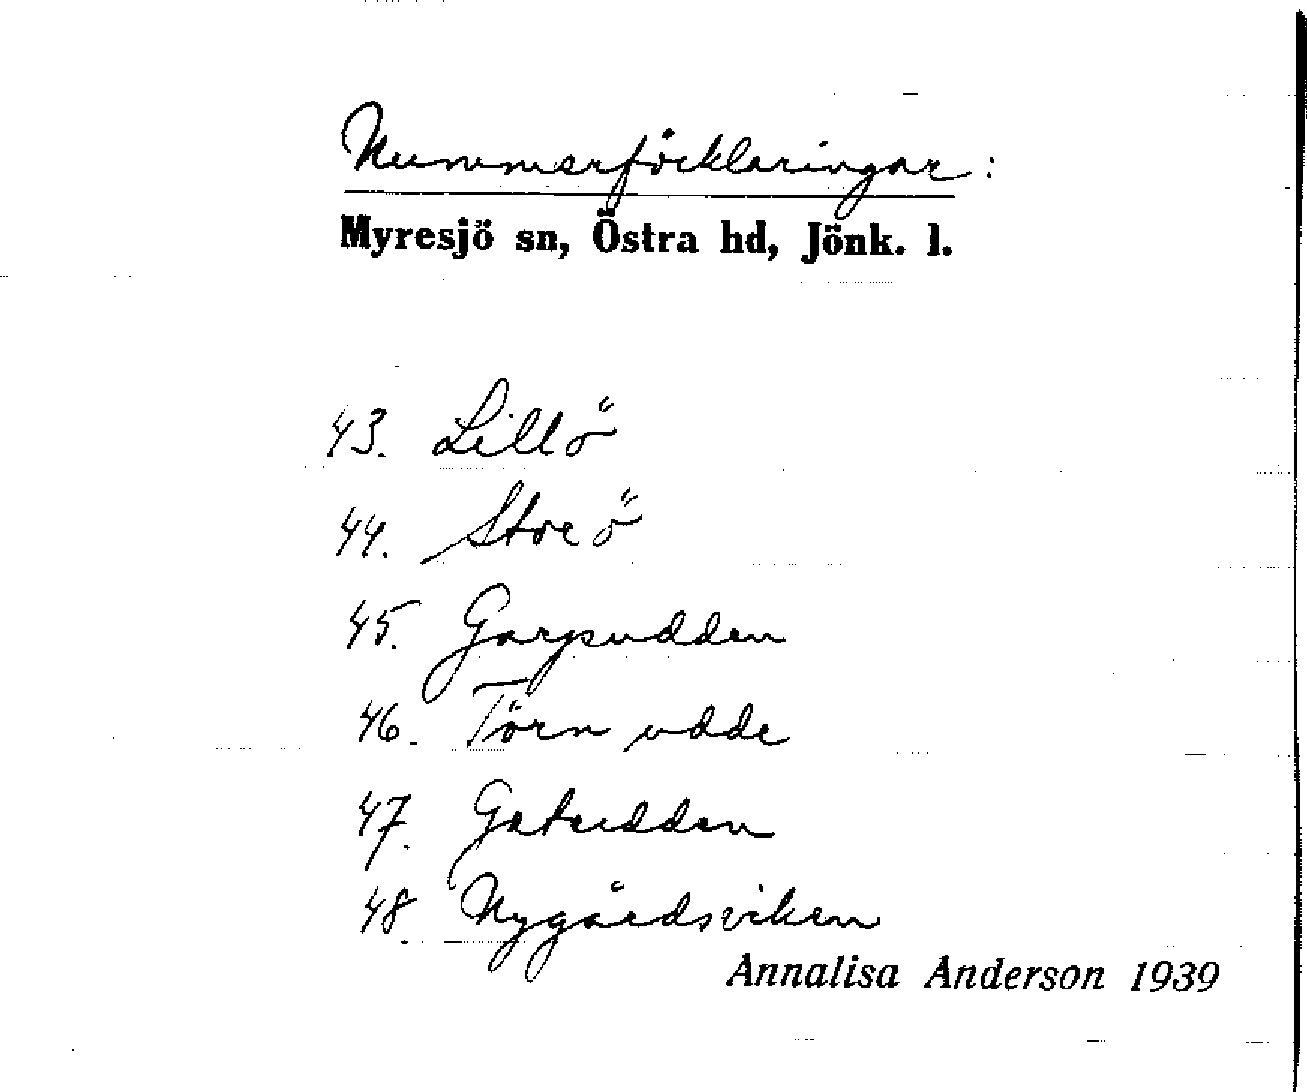 Nummerförklaringar:
Myresjö sn, Östra hd, Jönk. l.
43. Lillö
44. Storö
45. Garpsudden
46. Törn udde
47. Gatudden
48. Nygårdsviken
Annalisa Anderson 1939